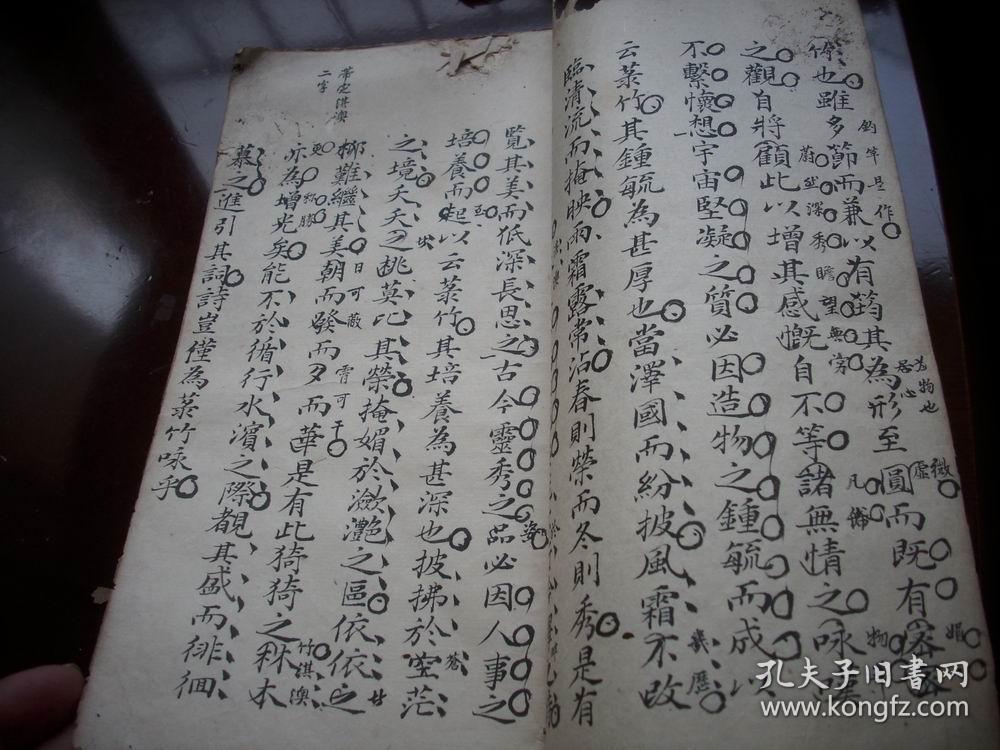 你也雖多節而兼以有筠其為形至圓而既有容容
之觀自將顧此以增其感慨自不等諸無情之咏
不繫懷想宇宙堅凝之質必因造物之鍾毓而成以
云菉竹其鍾毓為甚厚也當澤國而紛披風霜不改
臨清流而掩映雨霜露常沾春則榮而冬則秀是有
覧其美而低深長思之古今靈秀之品必因人事之
培養而起以云菉竹其培養為甚深也披拂於空茫
之境夭夭之桃莫比其榮掩媚於瀲灔之區依依之
柳難繼其美朝而發而夕而華是有此猗猗之秝木
亦為增光矣能不於循行水濱之際覩其盛而徘徊
慕之進引其詞詩豈僅為菉竹咏乎
鈞竿是作
蔚然深秀瞻望無窮
二字
竹淇澳
孔夫子旧书网
www.kongfz.com